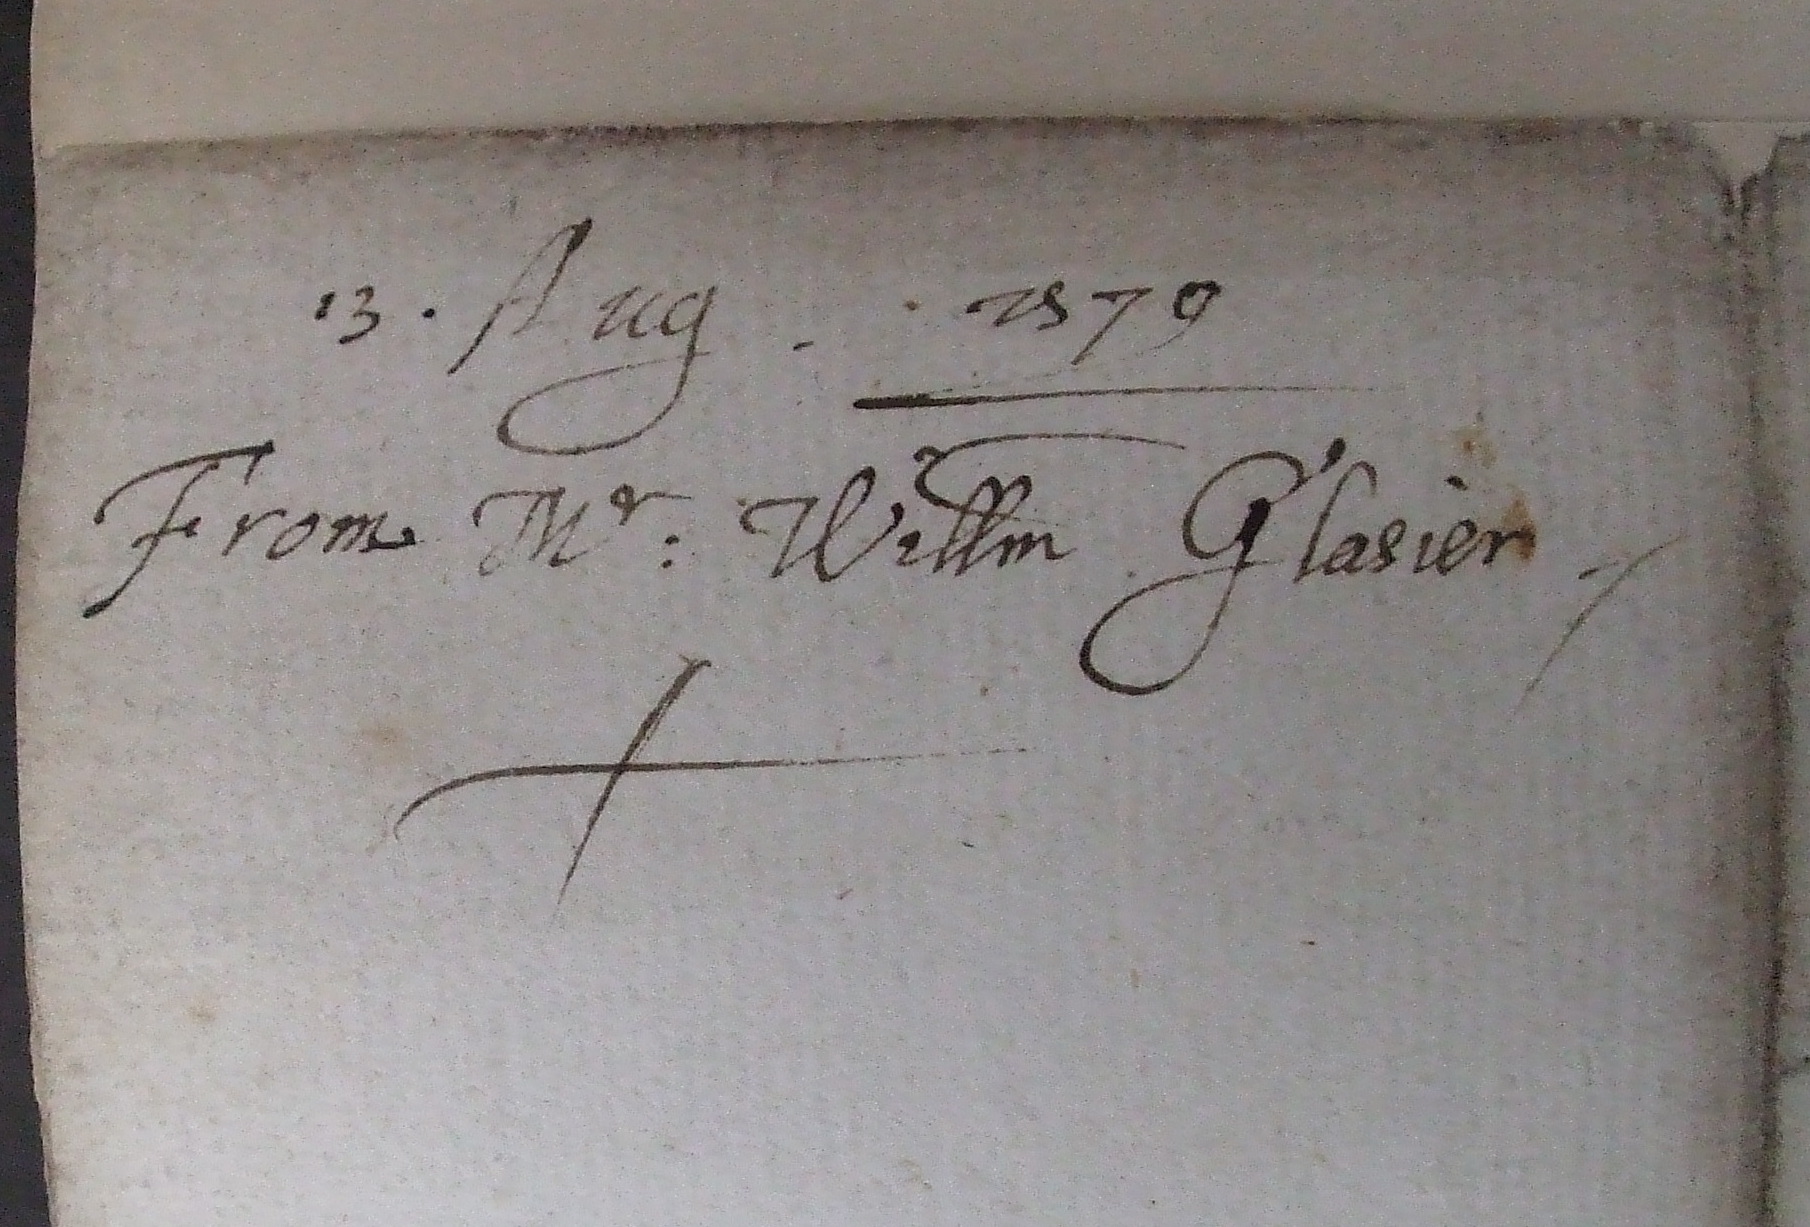 13. Aug. 1579
From Mr: Willm Glasier